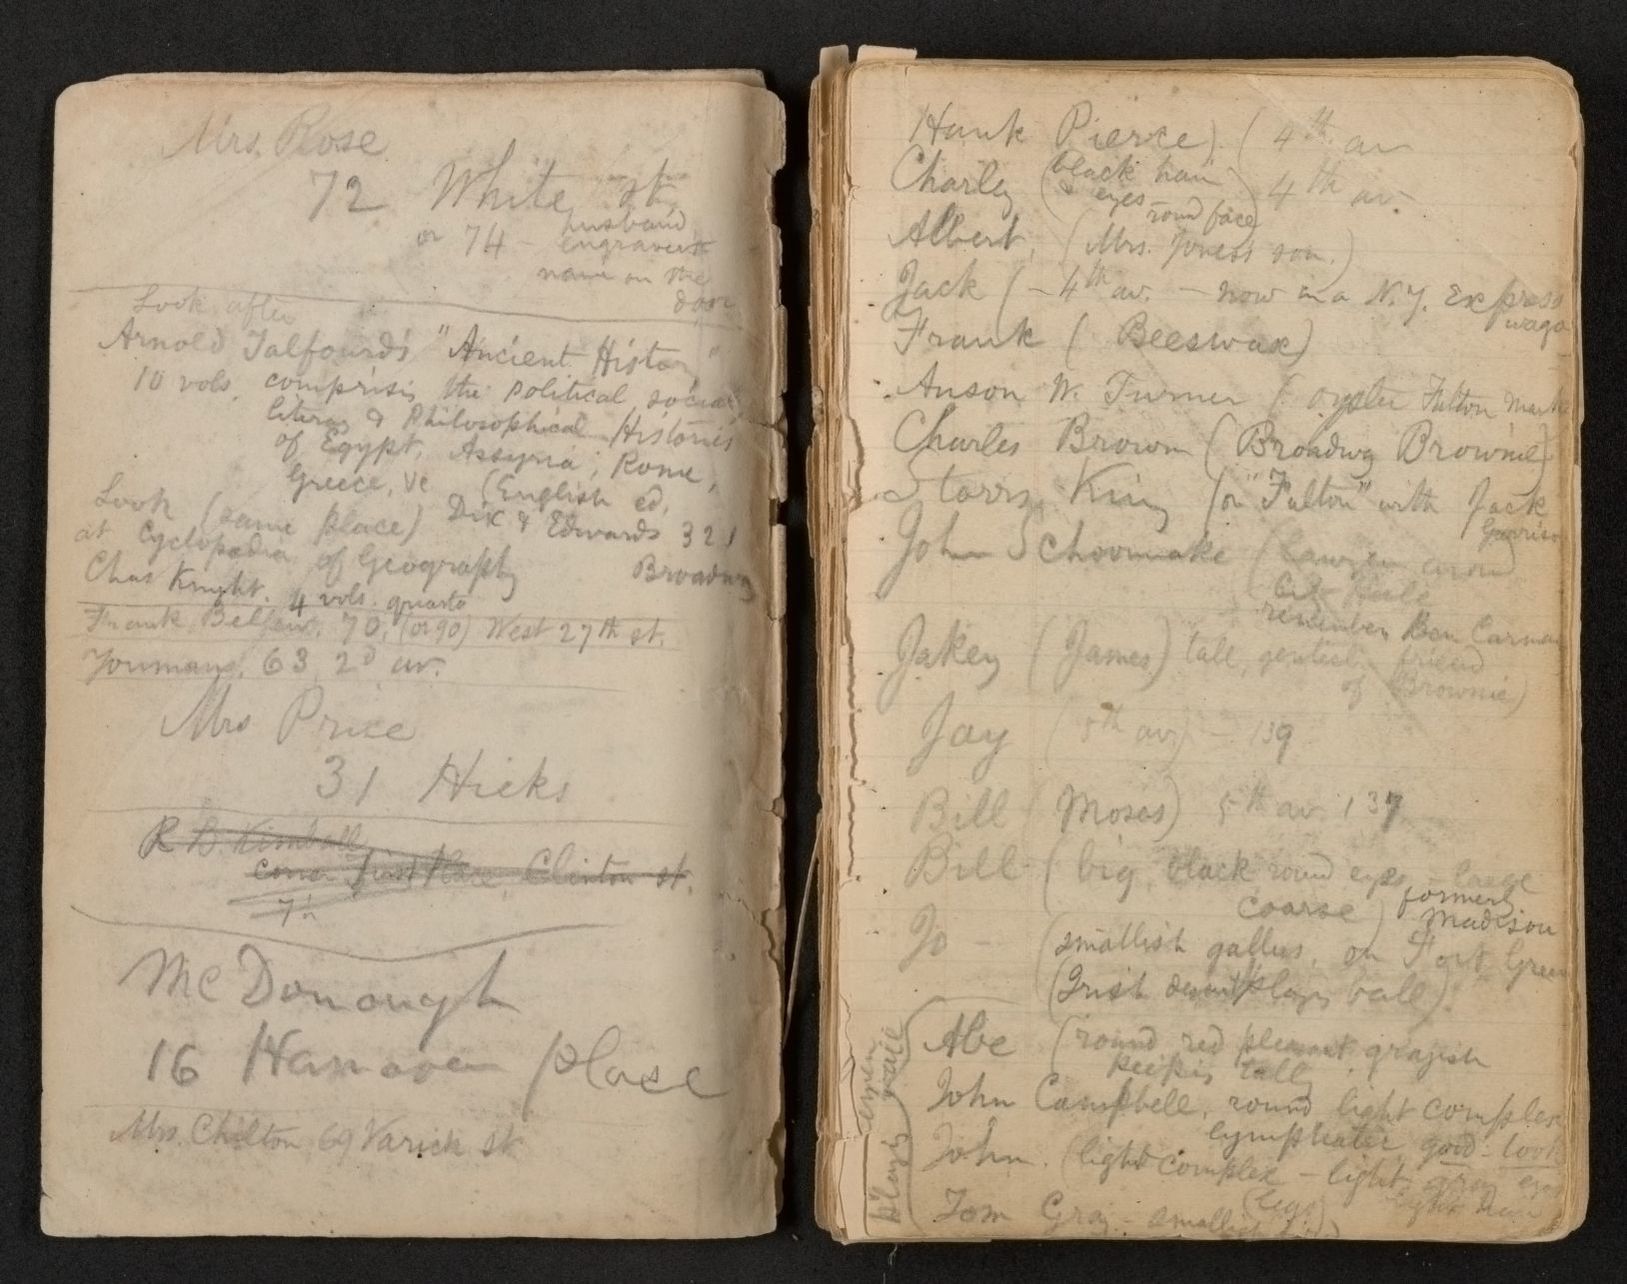 Mrs. Rose
72 White st
or 74 - husband
engraver's
name on the
door
Look after
Arnold Talfourd's "Ancient History"
10 vols. comprisi the political, social,
literary & Philosophical Histories
of Egypt, Assyria, Rome,
Greece, &c (English ed.
Look (same place) Dix & Edwards 321
Broadway
at Cyclopædia of Geography
Chas Knight. 4 vols. quarto
Frank Bellew, 70, (or 90) West 27th st.
Youmans, 63 2d av.
Mrs Price
31 Hicks
R B Kimball
Clinton st.
McDonough
16 Hanover place
Mrs. Chilton 69 Varick st
Hank Pierce) (4th av
Charley (black hair
& eyes round face) 4th av
Albert, (Mrs. Jones's son.)
Jack (- 4th av. - now in a N.Y. Express
wago
Frank (Beeswax)
Anson W. Turner (oyster Fulton Mark
Charles Brown (Broadway Brownie)
Starr King (on "Fulton" with Jack
Garrison
John Schoonmake (
City Hall
remember Ben Carman
Jakey (James) tall, genteel friend
of Brownie)
Jay (5th av) - 139
Bill (Moses) 5th av. 137
Bill (big, black round eyes - large
coarse) formerly
Madison
Jo - (smallish gallus, on Fort Green
(Irish descent plays ball)
Abe (round red pleasant grayish
keepis tally
John Campbell, round light complex
lymphatic good-look
John. (light complex - light gray eyes
light hair
(legs)
Tom Gray - smallish